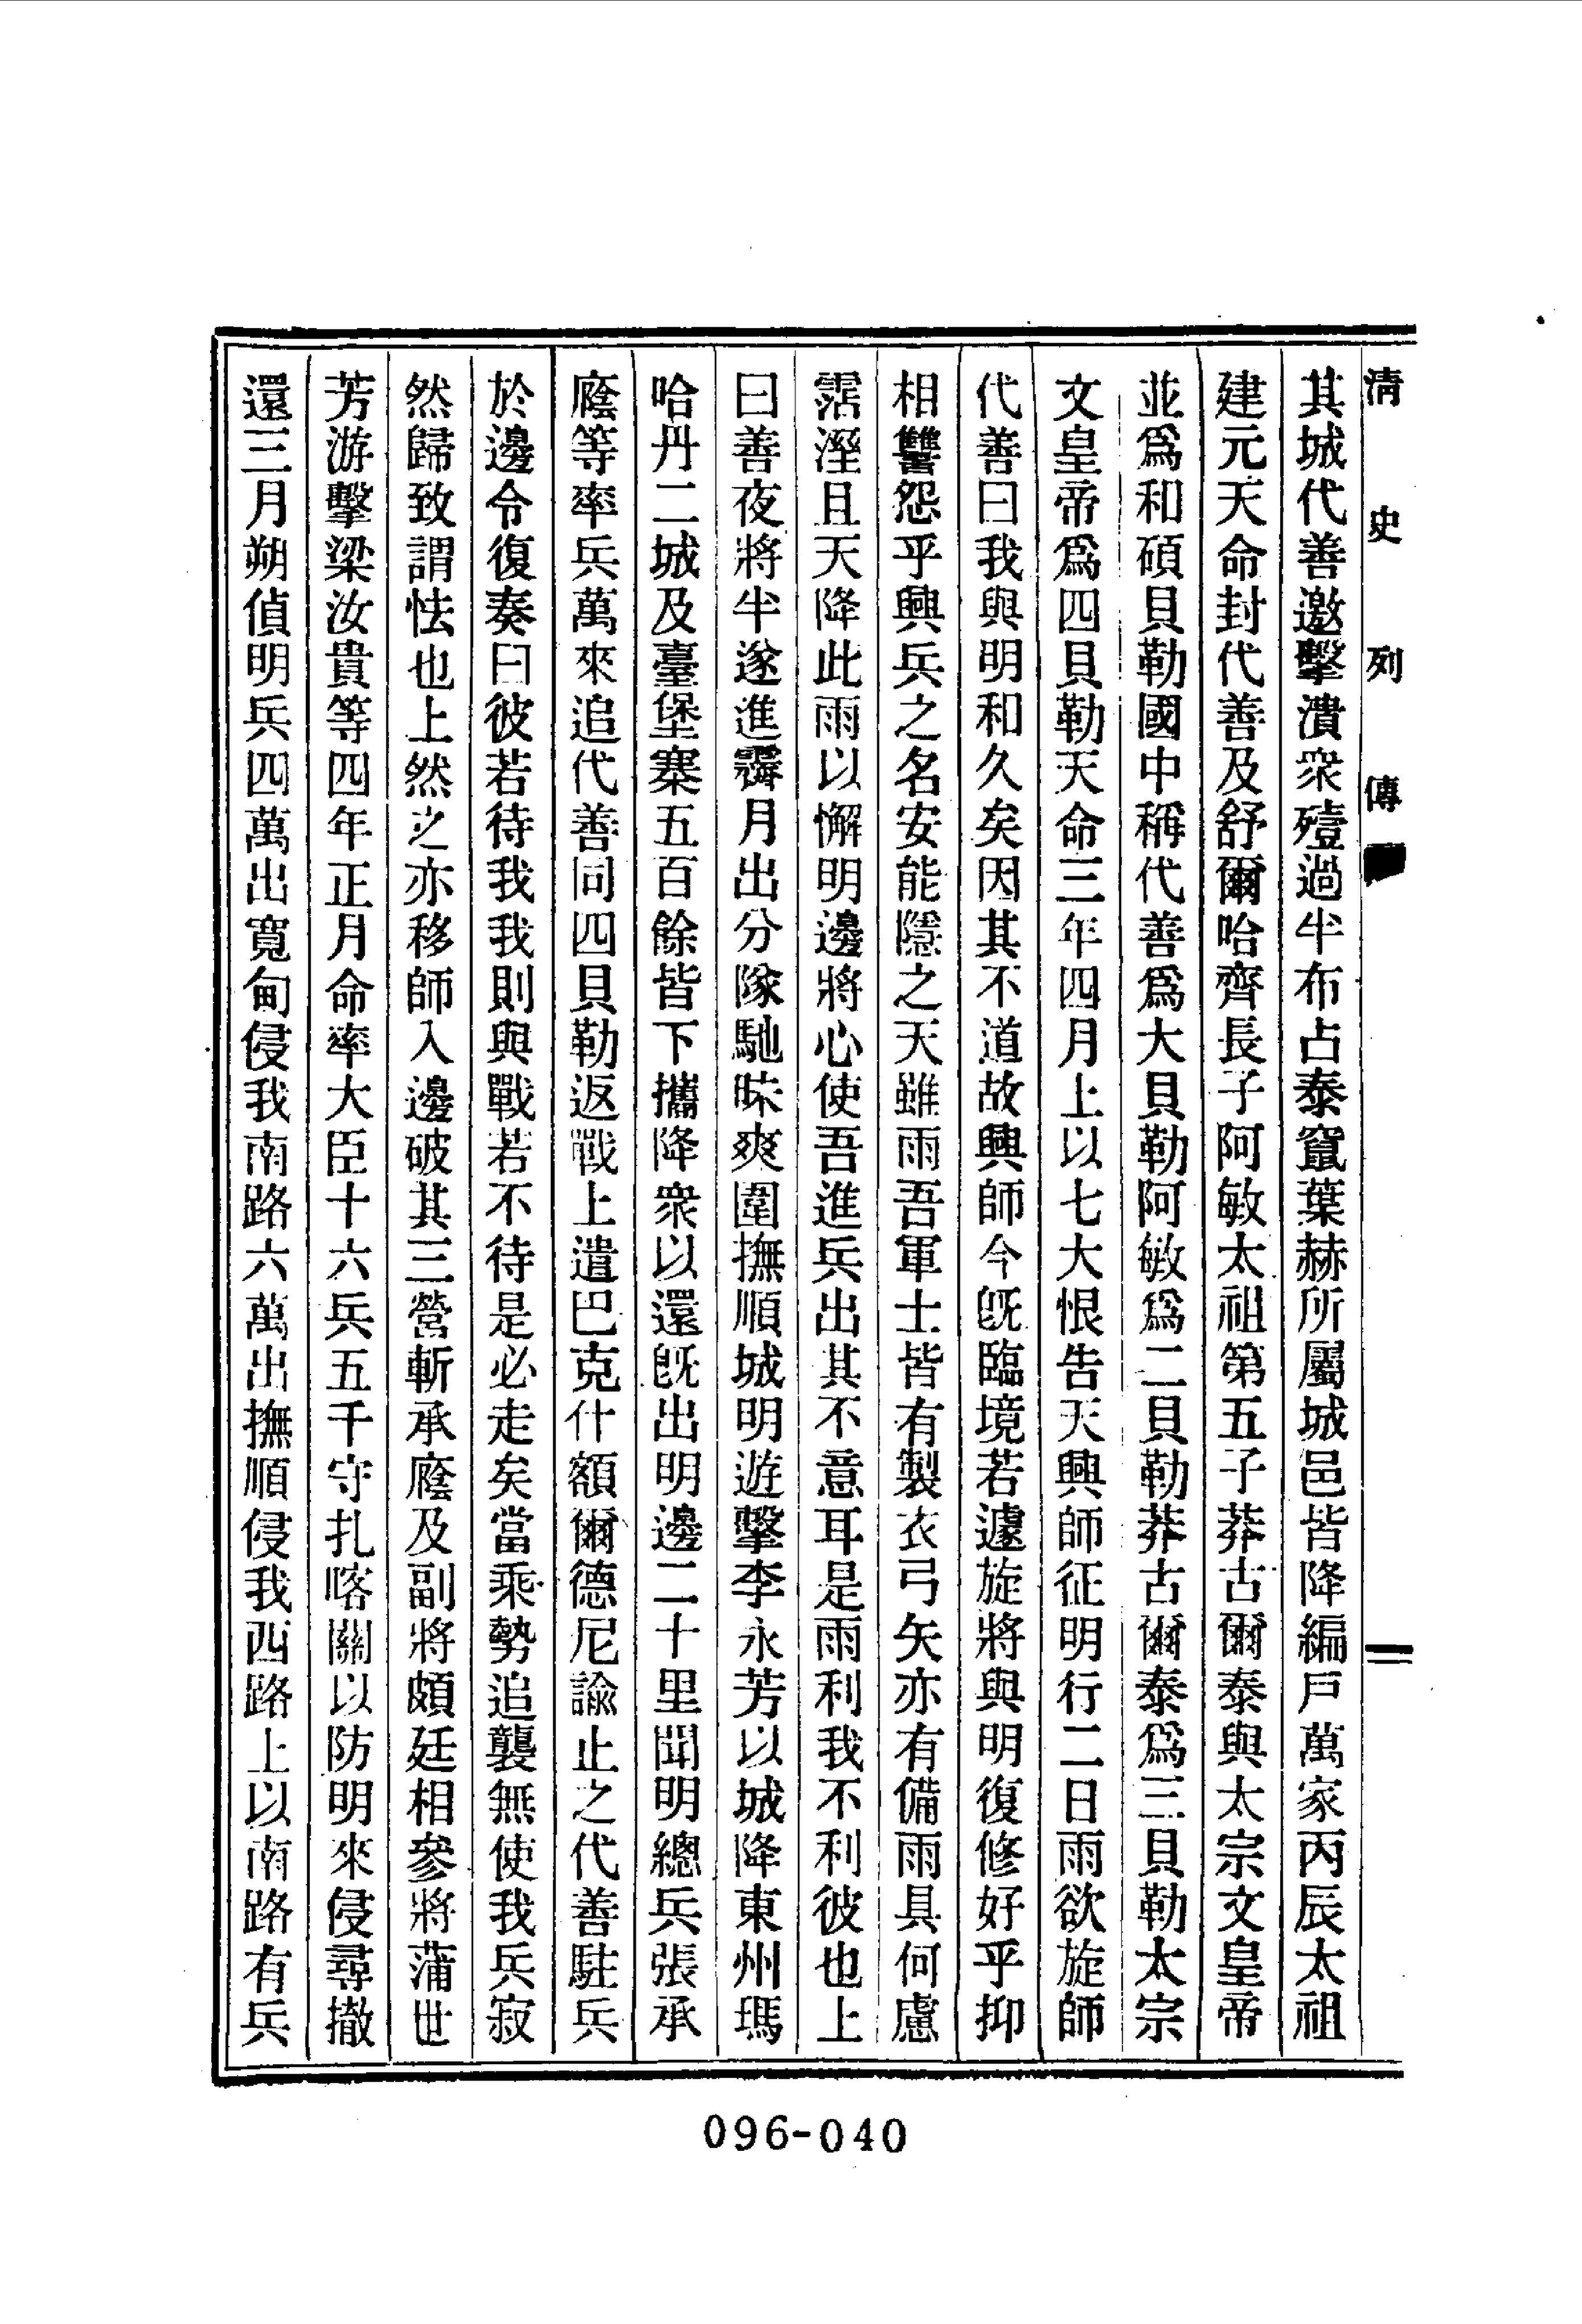 清史列傳
二
其城代善邀擊潰衆殪過半布占泰竄葉赫所屬城邑皆降編戸萬家丙辰太祖
建元天命封代善及舒爾哈齊長子阿敏太祖第五子莽古爾泰與太宗文皇帝
並爲和碩貝勒國中稱代善爲大貝勒阿敏爲二貝勒莽古爾泰爲三貝勒太宗
文皇帝爲四貝勒天命三年四月上以七大恨告天興師征明行二日雨欲旋師
代善曰我與明和久矣因其不道故興師今旣臨境若遽旋將與明復修好乎抑
相讐怨乎興兵之名安能隱之天雖雨吾軍士皆有製衣弓矢亦有備雨具何慮
霑溼且天降此雨以懈明邊將心使吾進兵出其不意耳是雨利我不利彼也上
曰善夜將半遂進霽月出分隊馳昧爽圍撫順城明遊擊李永芳以城降東州瑪
哈丹二城及臺堡寨五百餘皆下攜降衆以還旣出明邊二十里聞明總兵張承
廕等率兵萬來追代善同四貝勒返戰上遣巴克什額爾德尼諭止之代善駐兵
於邊令復奏曰彼若待我我則與戰若不待是必走矣當乘勢追襲無使我兵寂
然歸致謂怯也上然之亦移師入邊破其三營斬承廕及副將頗廷相參將蒲世
芳游擊梁汝貴等四年正月命率大臣十六兵五千守扎喀關以防明來侵尋撤
還三月朔偵明兵四萬出寬甸侵我南路六萬出撫順侵我西路上以南路有兵
096-040